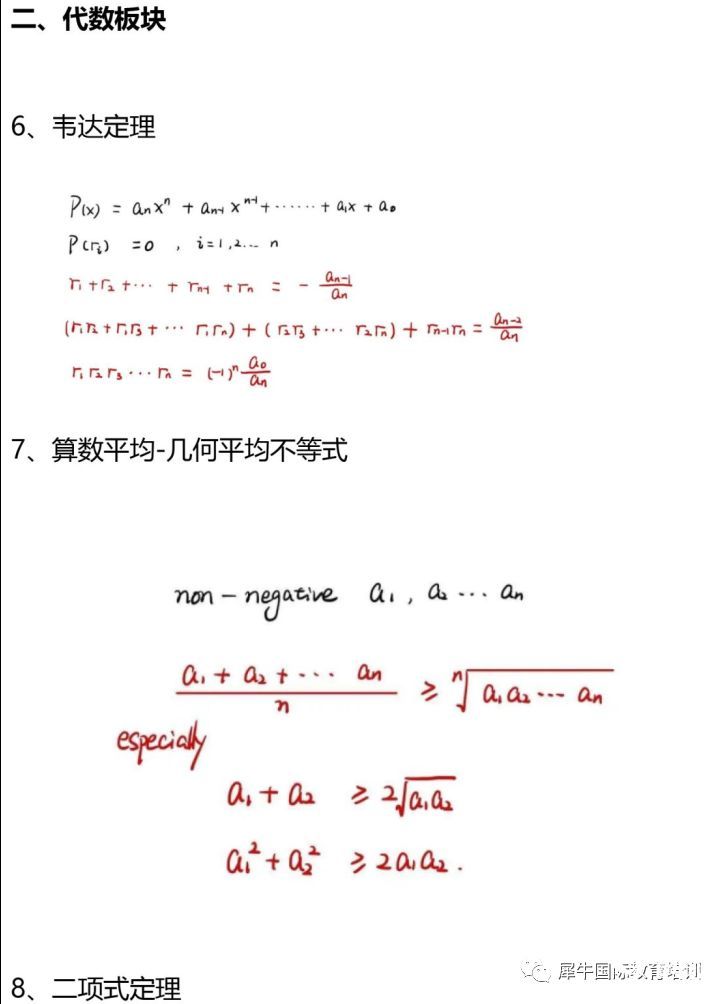 二、代数板块
6、韦达定理
P(x) = aₙxⁿ + aₙ₋₁xⁿ⁻¹ + ⋯⋯ + a₁x + a₀
P(rᵢ) = 0 , i=1,2… n
r₁ + r₂ + ⋯ + rₙ₋₁ + rₙ = - aₙ₋₁/aₙ
(r₁r₂ + r₁r₃ + ⋯ r₁rₙ) + (r₂r₃ + ⋯ r₂rₙ) + rₙ₋₁rₙ = aₙ₋₂/aₙ
r₁ r₂ r₃ ⋯ rₙ = (-1)ⁿ a₀/aₙ
7、算数平均-几何平均不等式
non-negative a₁, a₂ ⋯ aₙ
(a₁ + a₂ + ⋯ aₙ)/n ≥ ⁿ√(a₁a₂ ⋯ aₙ)
especially
a₁ + a₂ ≥ 2√(a₁a₂)
a₁² + a₂² ≥ 2a₁a₂.
8、二项式定理
犀牛国际教育培训